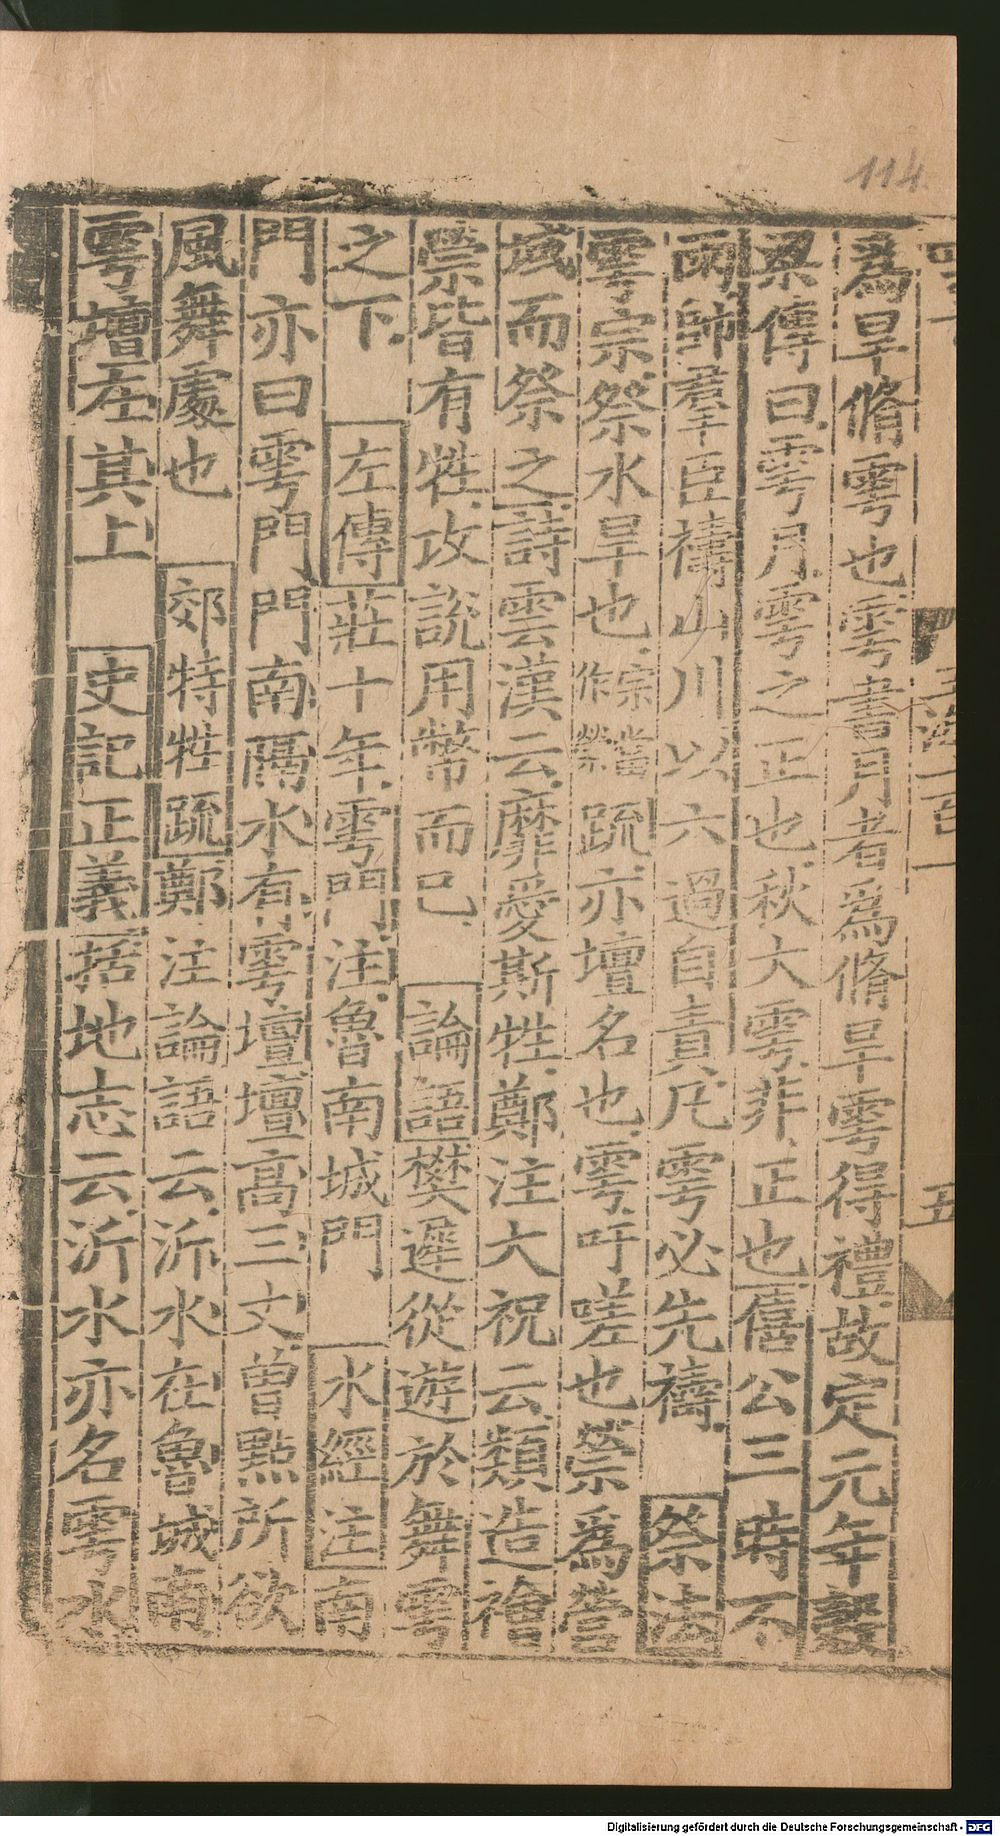 114.
爲旱脩雩也雩書月者爲脩旱雩得禮故定元年穀
梁傳曰雩月雩之正也秋大雩非正也僖公三時不
雨帥羣臣禱山川以六過自責凡雩必先禱 祭法
雩宗祭水旱也宗當作禜疏亦壇名也雩吁嗟也禜爲營
或而祭之詩雲漢云靡愛斯牲鄭注大祝云類造禬
禜皆有牲攻說用幣而已 論語樊遲從遊於舞雩
之下 左傳莊十年雩門注魯南城門 水經注南
門亦曰雩門門南隔水有雩壇壇高三丈曾點所欲
風舞處也 郊特牲疏鄭注論語云沂水在魯城南
雩壇在其上 史記正義括地志云沂水亦名雩水
五
Digitalisierung gefördert durch die Deutsche Forschungsgemeinschaft - DFG